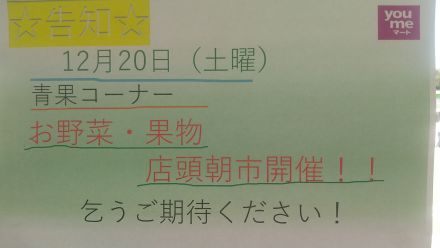 ☆告知☆
you
me
マート
12月20日（土曜）
青果コーナー
お野菜・果物
店頭朝市開催！！
乞うご期待ください！